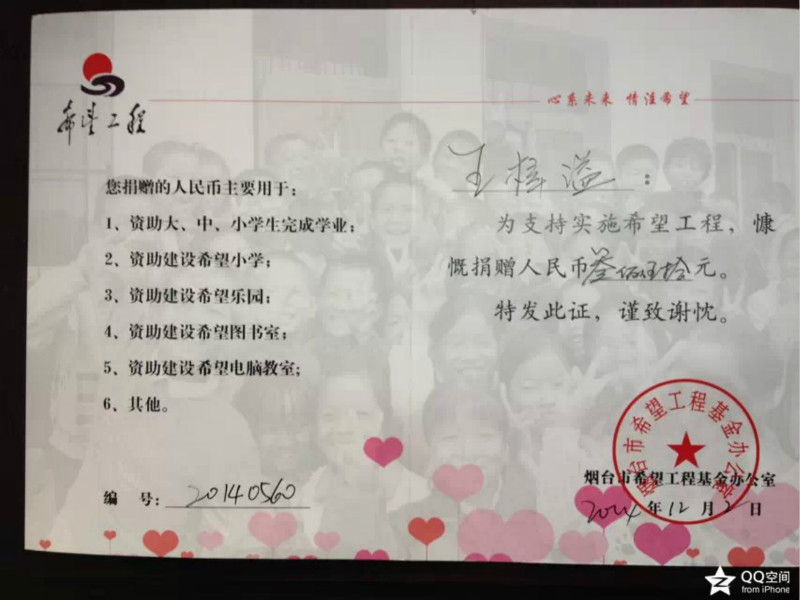 希望工程
心系未来 情注希望
您捐赠的人民币主要用于：
1、资助大、中、小学生完成学业；
2、资助建设希望小学；
3、资助建设希望乐园；
4、资助建设希望图书室；
5、资助建设希望电脑教室；
6、其他。
编 号：20140560
王梓溢：
为支持实施希望工程，慷
慨捐赠人民币叁佰伍拾元。
特发此证，谨致谢忱。
烟台市希望工程基金办公室
烟台市希望工程基金办公室
2014年12月2日
QQ空间
from iPhone